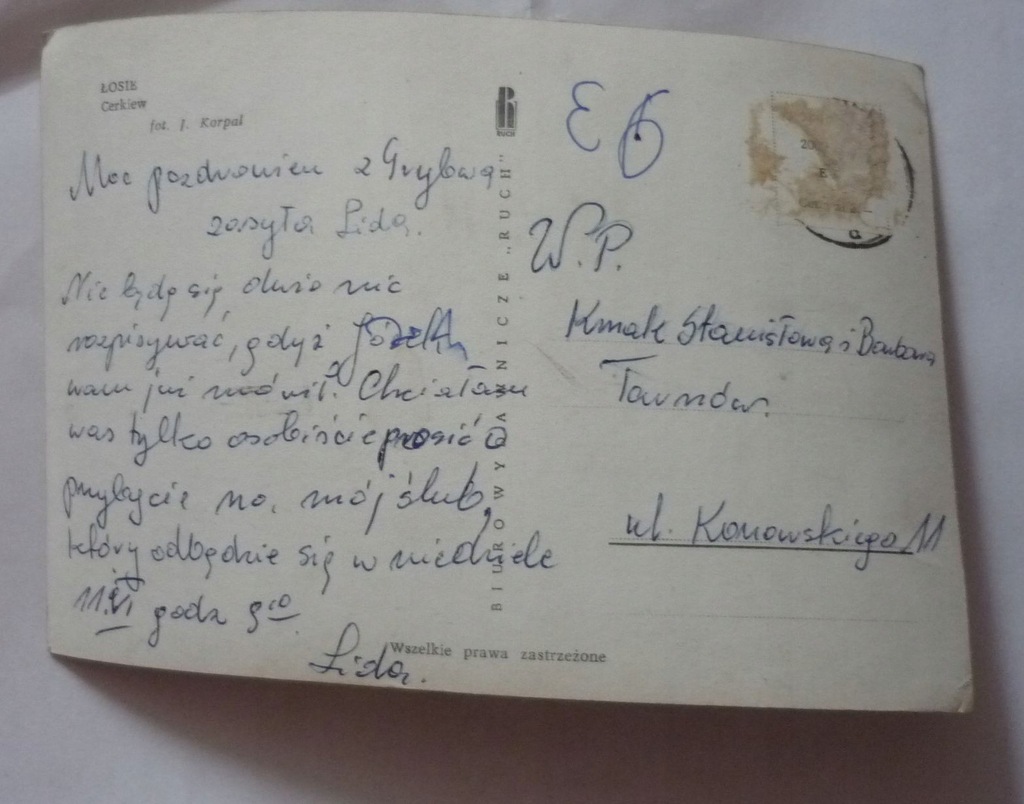 ŁOSIE
Cerkiew
fot. J. Korpal
Moc pozdrowień z Grybowa
zasyła Lida.
Nie będę się dużo nic
rozpisywać, gdyż Józek
wam już mówił. Chciałam
was tylko osobiście prosić o
przybycie na mój ślub,
który odbędzie się w niedziele
11.VI godz 9
Lida.
BIURO WYDAWNICZE „RUCH"
RUCH
Wszelkie prawa zastrzeżone
W.P.
Kmak Stanisława i Barbara
Tarnów.
ul. Konowskiego 11